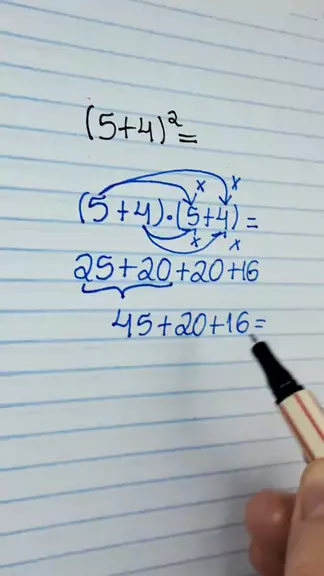 (5+4)²=
(5+4)·(5+4)=
x x
x x
25+20+20+16
45+20+16=